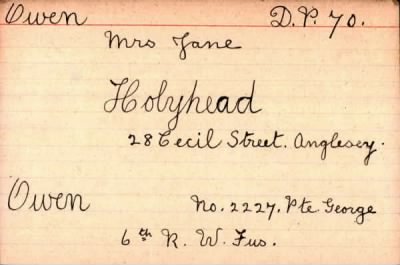 Owen D.P. 70.
Mrs Jane
Holyhead
28 Cecil Street. Anglesey.
Owen No. 2227. Pte. George
6th R. W. Fus.